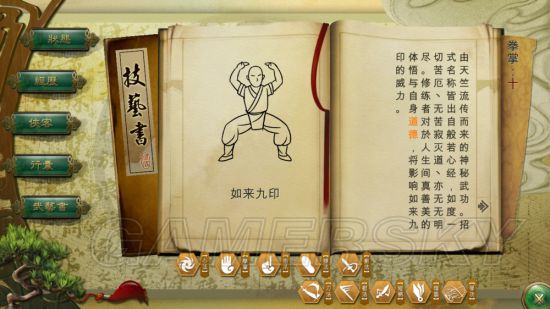 狀態
經歷
俠客
行囊
武藝書
技藝書
如来九印
拳掌·十
由天竺流传而来的神秘武功。招
式名称皆出自般若心经，如度一
切苦厄、无苦寂灭道、亦无无明
尽。修练者对於人生间真善美的
体悟与自身道德，将影响如来九
印的威力。
GAMERSKY